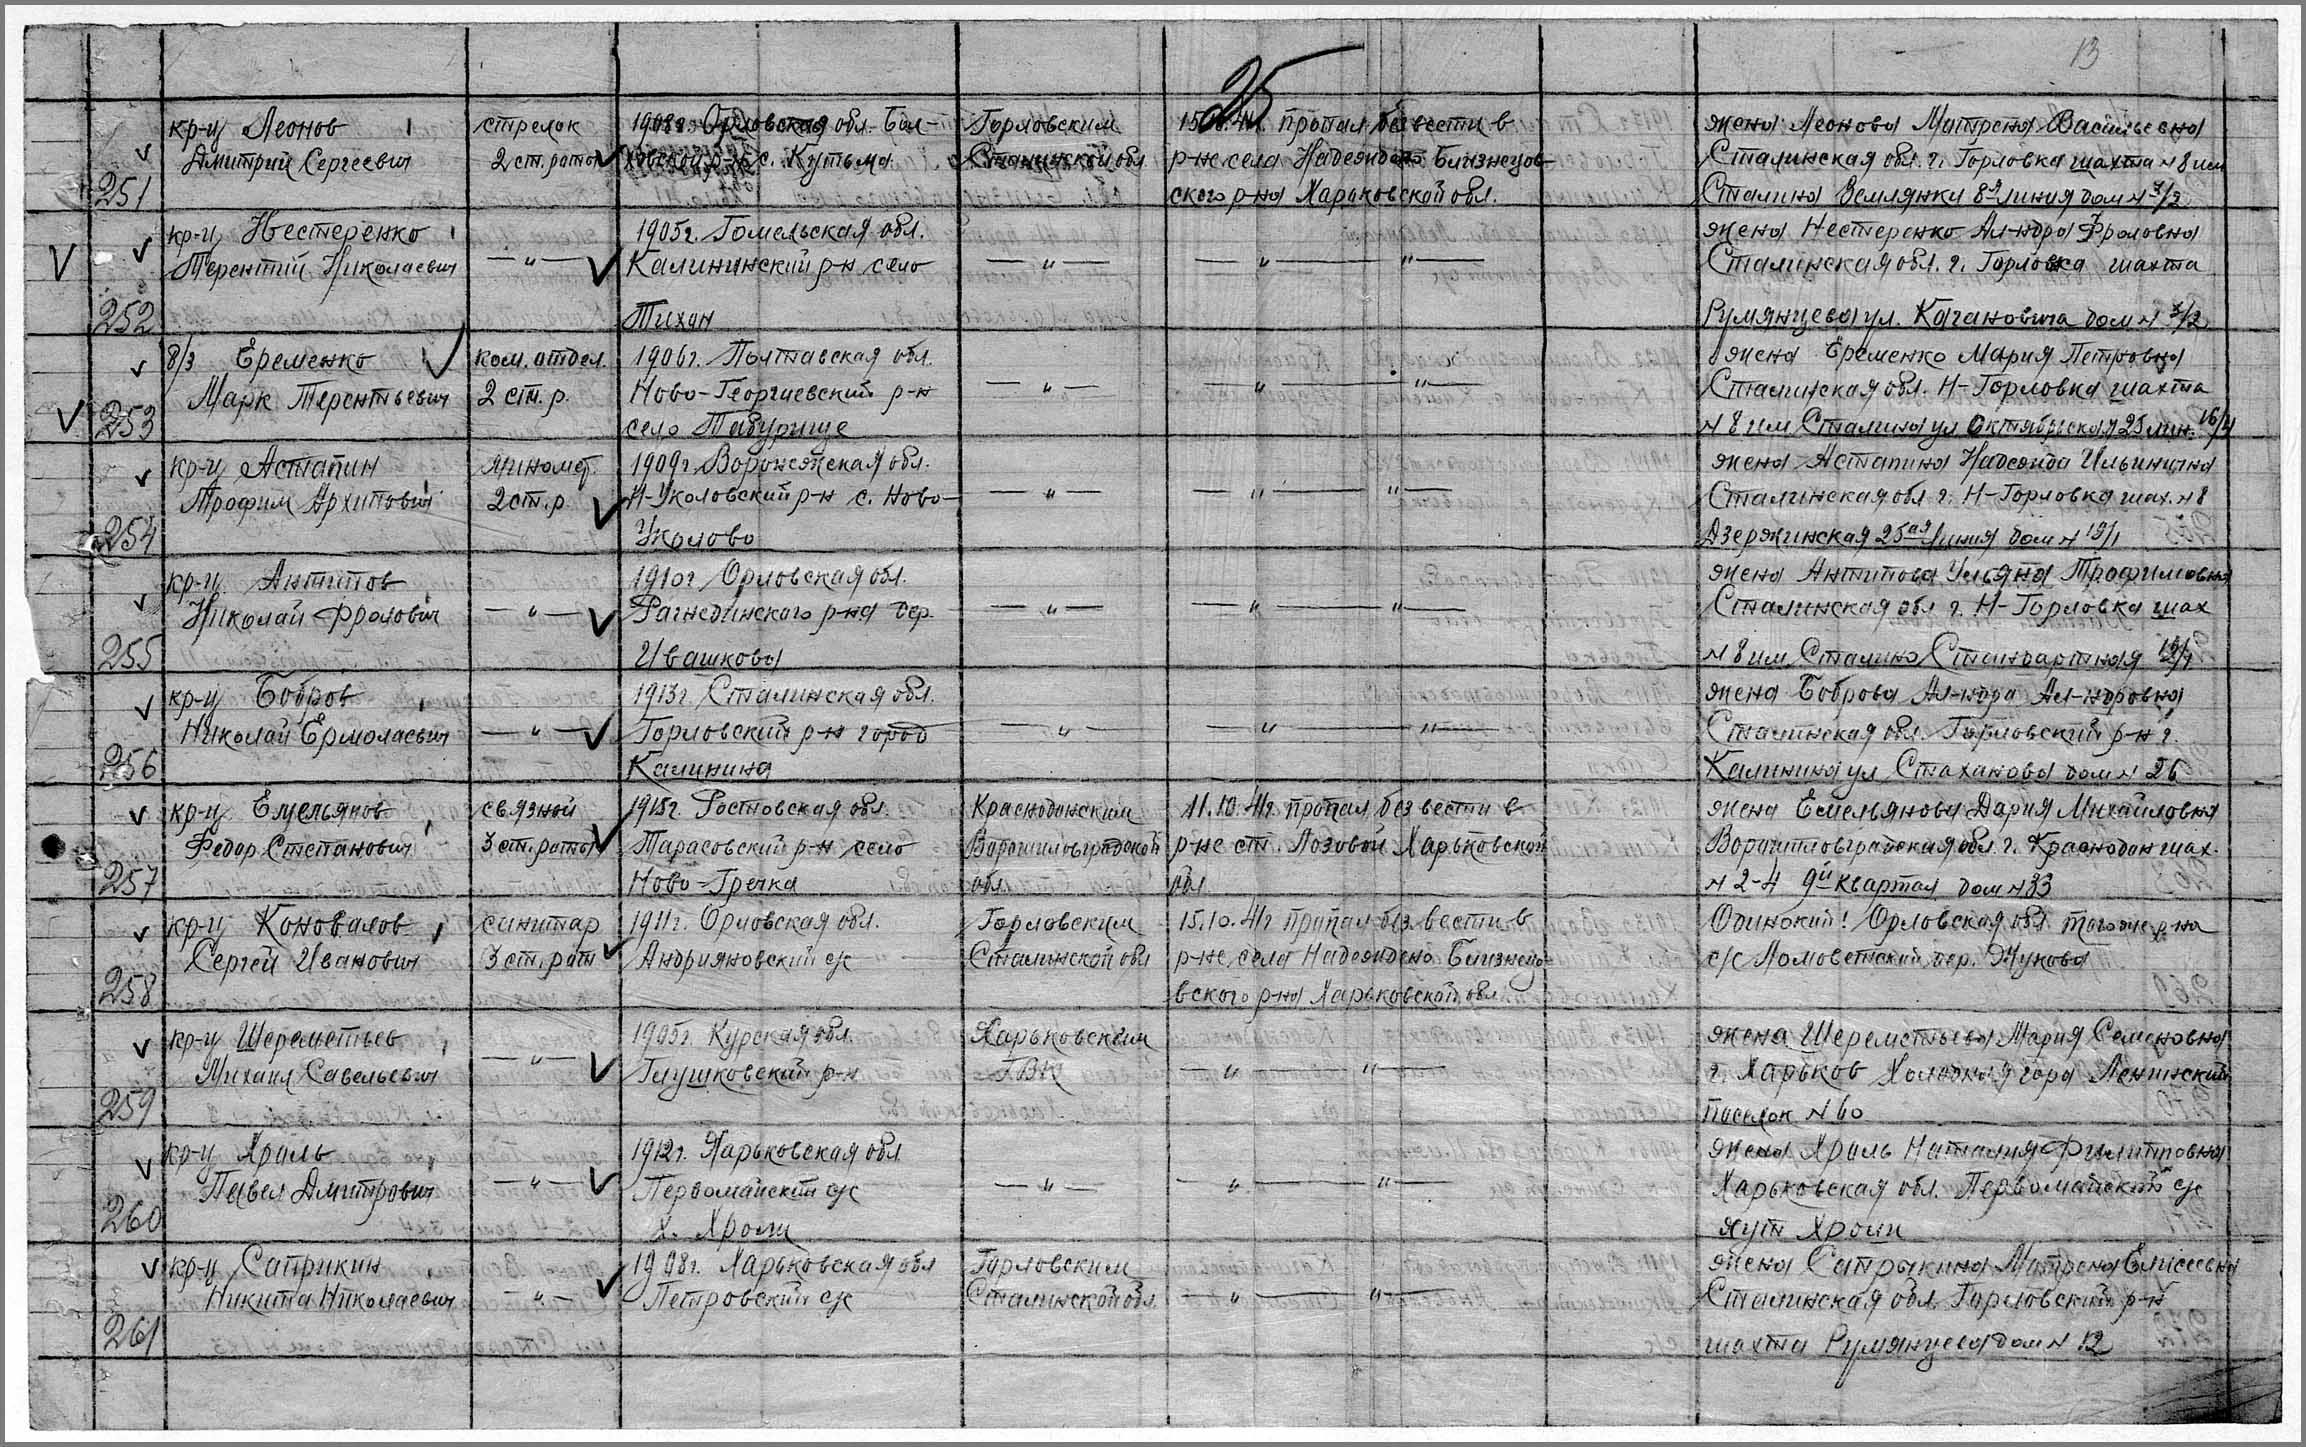 25
13
кр-ц Леонов
Дмитрий Сергеевич
251
стрелок
2 ст. ротой
1908г. Орловская обл. Бол-
ховской р-н с. Кутьма
Горловским
Сталинской обл.
15.10.41г. пропал без вести в
р-не села Надеждено Близнецов-
ского р-на Харьковской обл.
жена Леонова Матрена Васильевна
Сталинская обл. г. Горловка шахта N 8 им
Сталина Землянки 8я линия дом N 7/2
кр-ц Нестеренко
Терентий Николаевич
252
— " —
1905г. Гомельская обл.
Калининский р-н село
Тихан
— " —
— " — " —
жена Нестеренко Ал-ндра Фроловна
Сталинская обл. г. Горловка шахта
Румянцева ул. Кагановича дом N 3/2
в/з Еременко
Марк Терентьевич
253
ком. отдел.
2 ст. р.
1906г. Полтавская обл.
Ново-Георгиевский р-н
село Табурище
— " —
— " — " —
жена Еременко Мария Петровна
Сталинская обл. Н-Горловка шахта
N 8 им Сталина ул Октябрьская 25 лин. 16/4
кр-ц Астапин
Трофим Архипович
254
миномет.
2 ст. р.
1909г. Воронежская обл.
Н-Уколовский р-н с. Ново-
Уколово
— " —
— " — " —
жена Астапина Надежда Ильинична
Сталинская обл г. Н-Горловка шах. N 8
Дзержинская 25ая линия дом N 19/1
кр-ц Антипов
Николай Фролович
255
— " —
1910г Орловская обл.
Рагнединского р-на дер.
Ивашкова
— " —
— " — " —
жена Антипова Ульяна Трофимовна
Сталинская обл г. Н-Горловка шах
N 8 им Сталина Стандартная
кр-ц Бобров
Николай Ермолаевич
256
— " —
1913г. Сталинская обл.
Горловский р-н город
Калинина
— " —
— " — " —
жена Боброва Ал-ндра Ал-ндровна
Сталинская обл. Горловский р-н г.
Калинина ул Стаханова дом N 26
кр-ц Емельянов
Федор Степанович
257
связной
3 ст. ротой
1915г. Ростовская обл.
Тарасовский р-н село
Ново-Гречка
Краснодонским
Ворошиловградской
обл.
11.10.41г. пропал без вести в
р-не ст. Лозовой Харьковской
обл
жена Емельянова Дария Михайловна
Ворошиловградская обл. г. Краснодон шах.
N 2-4 9й квартал дом N 33
кр-ц Коновалов
Сергей Иванович
258
санитар
3 ст. рот
1911г. Орловская обл.
Андрияновский с/с
Горловским
Сталинской обл
15.10.41г пропал без вести в
р-не села Надеждено Близнецо-
вского р-на Харьковской обл.
Одинокий! Орловская обл. тогоже р-на
с/с Ломоветский дер. Жукова
кр-ц Шереметьев
Михаил Савельевич
259
— " —
1905г. Курская обл.
Глушковский р-н
Харьковским
ГВК
— " — " —
жена Шереметьева Мария Семеновна
г. Харьков Холодная гора Ленинский
поселок N 60
кр-ц Храль
Павел Дмитрович
260
— " —
1912г. Харьковская обл
Первомайский с/с
х. Хроли
— " —
— " — " —
жена Храль Наталия Филипповна
Харьковская обл. Первомайский с/с
хут Хроли
кр-ц Саприкин
Никита Николаевич
261
— " —
1908г. Харьковская обл
Петровский с/с
Горловским
Сталинской обл.
— " — " —
жена Сапрыкина Матрена Елисеевна
Сталинская обл. Горловский р-н
шахта Румянцева дом N 12